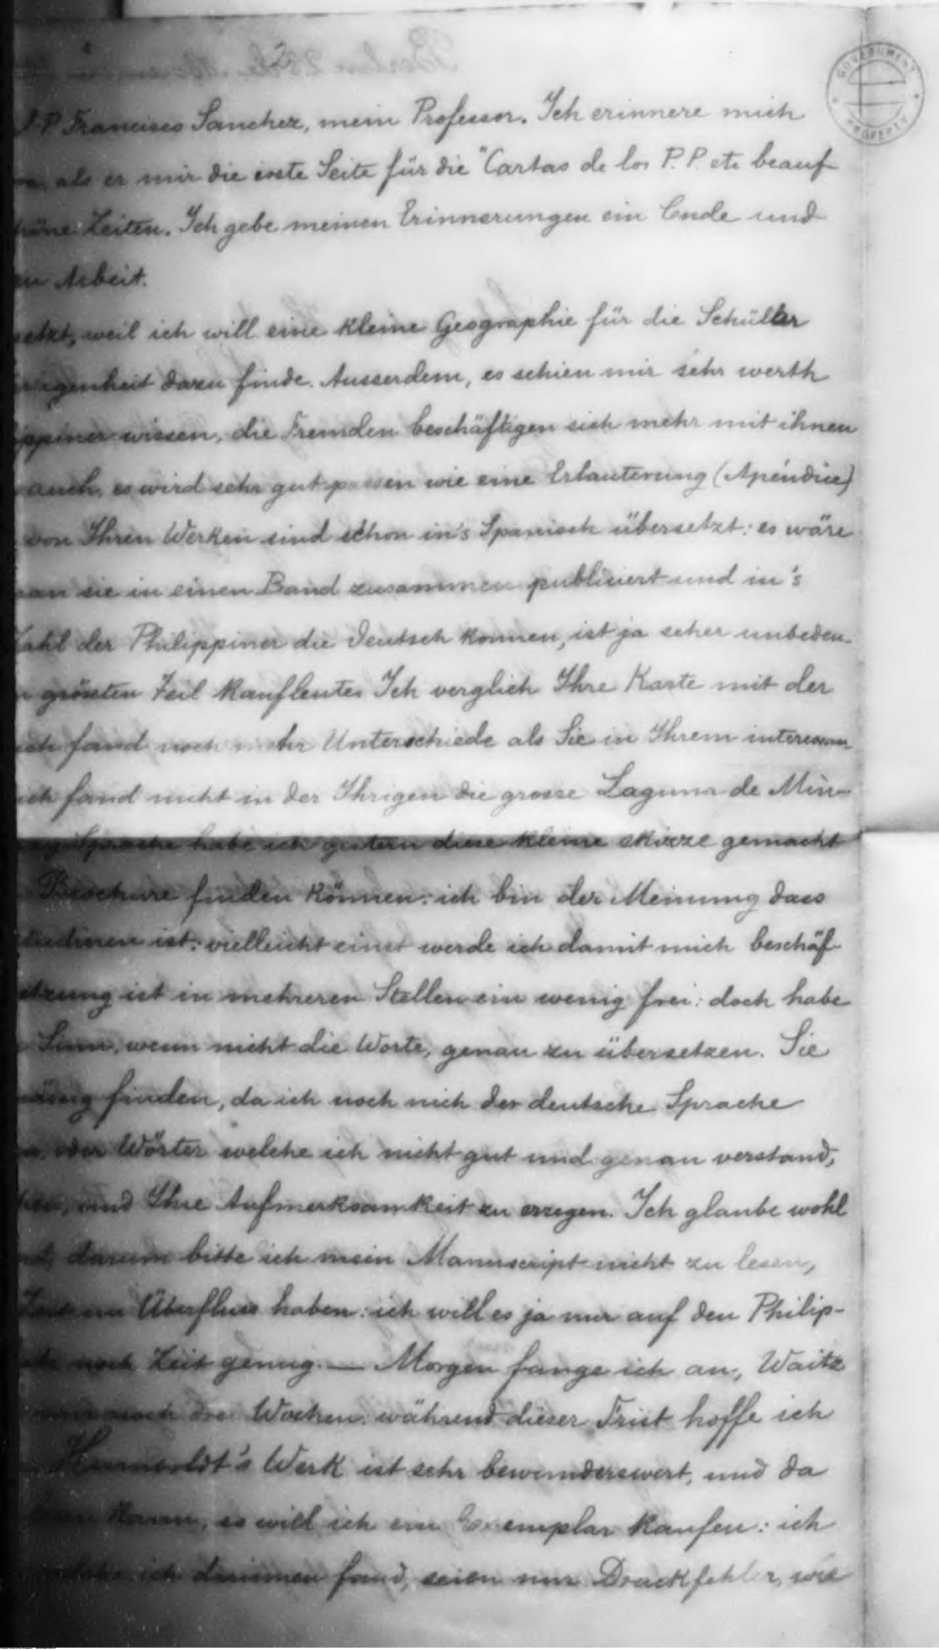 GOVERNMENT PROPERTY
P. Francisco Sanchez, mein Professor. Ich erinnere mich
als er mir die erste Seite für die "Cartas de los P.P. etc beauf-
Zeiten. Ich gebe meinen Erinnerungen ein Ende und
Arbeit.
weil ich will eine kleine Geographie für die Schüller
dazu finde. Ausserdem, es schien mir sehr werth
wissen, die Fremden beschäftigen sich mehr mit ihnen
auch, es wird sehr gut passen wie eine Erlauterung (Apéndice)
von Ihren Werken sind schon in's Spanisch übersetzt: es wäre
sie in einen Band zusammen publiciert und in's
der Philippiner die Deutsch konnen, ist ja seher unbeden-
grössten Teil Kaufleute. Ich verglich Ihre Karte mit der
fand noch mehr Unterschiede als Sie in Ihrem interessan-
fand nicht in der Ihrigen die grosse Laguna de Min-
Sprache habe ich gestern diese kleine skizze gemacht
Brochure finden können: ich bin der Meinung dass
ist: vielleicht einst werde ich damit mich beschäf-
ist in mehreren Stellen ein wenig frei: doch habe
Sinn, wenn nicht die Worte, genau zu übersetzen. Sie
finden, da ich noch nich der deutsche Sprache
oder Wörter welche ich nicht gut und genau verstand,
und Ihre Aufmerksamkeit zu erregen. Ich glaube wohl
darum bitte ich mein Manuscript nicht zu lesen,
Überfluss haben: ich will es ja nur auf den Philip-
noch Zeit genug. — Morgen fange ich an, Waitz
noch drei Wochen: während dieser Frist hoffe ich
Humboldt's Werk ist sehr bewunderswert, und da
kann, so will ich ein Exemplar kaufen: ich
ich darinnen fand, seien nur Druckfehler, wie